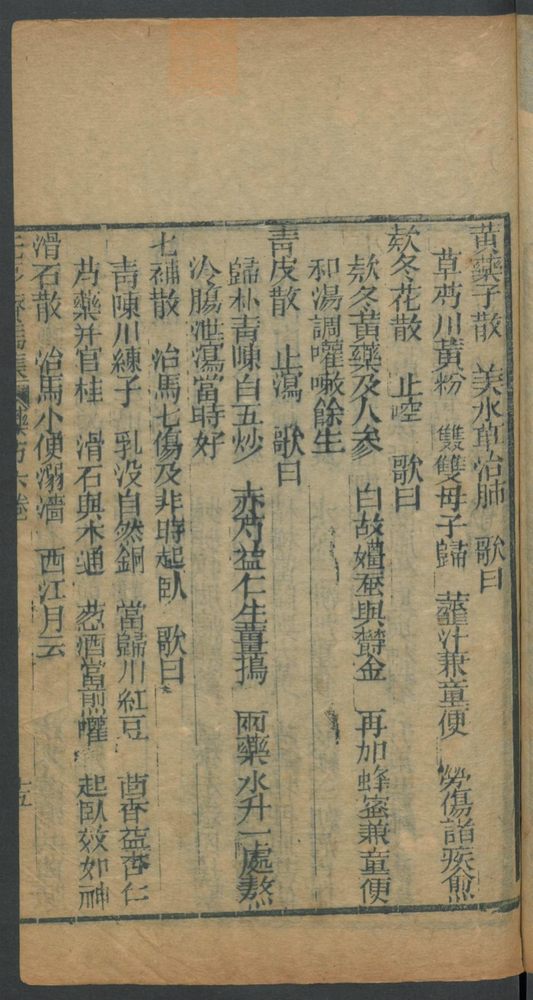 黃藥子散　美水草治肺　歌曰
草芍川黃粉　雙雙母子歸　虀汁兼童便　勞傷諸疾愈
款冬花散　止啌　歌曰
款冬黃藥及人參　白故殭蚕與欝金　再加蜂蜜兼童便
和湯調嚾嗽餘生
青皮散　止瀉　歌曰
歸朴青陳白五炒　赤芍益仁生薑搗　兩藥水升一處熬
冷腸泄瀉當時好
七補散　治馬七傷及非時起臥　歌曰
青陳川練子　乳没自然銅　當歸川紅豆　茴香益杏仁
芍藥并官桂　滑石與木通　葱酒當煎嚾　起臥效如神
滑石散　治馬小便溺濇　西江月云
元亨療馬集　藥方六卷　十五